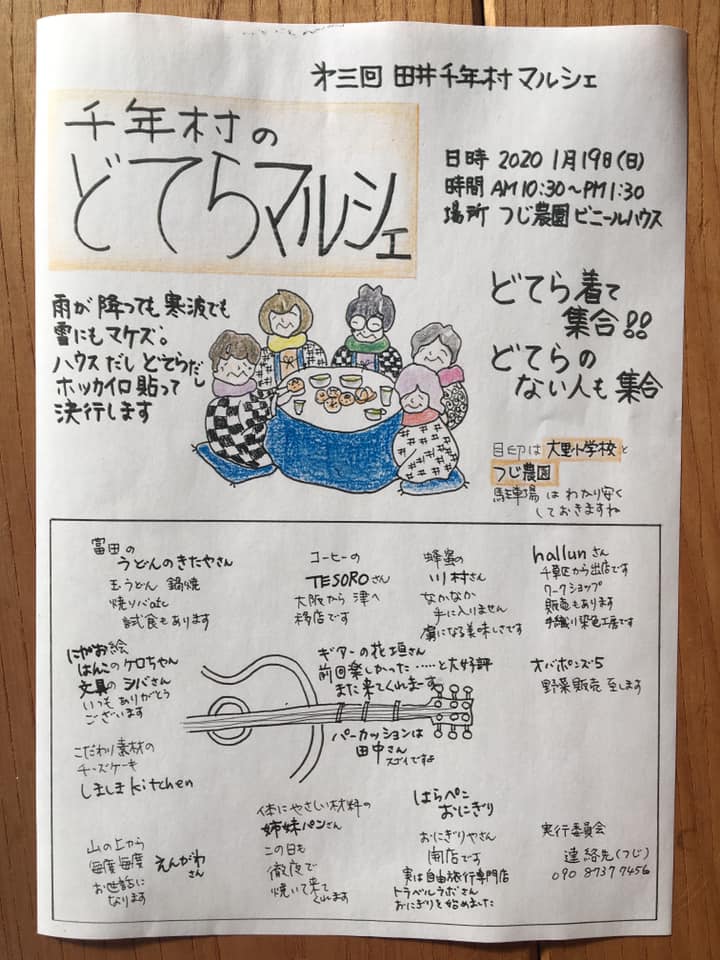 才三回 田井千年村マルシェ
千年村の
どてらマルシェ
日時 2020 1月19日(日)
時間 AM10:30〜PM1:30
場所 つじ農園ビニールハウス
雨が降っても寒波でも
雪にもマケズ。
ハウスだし どてらだし
ホッカイロ貼って
決行します
どてら着て
集合!!
どてらの
ない人も集合
目印は 大里小学校と
つじ農園
駐車場はわかり安く
しておきますね
富田の
うどんのきたやさん
玉うどん 鍋焼
焼ソバetc
試食もあります
コーヒーの
TESOROさん
大阪から津へ
移店です
蜂蜜の
川村さん
なかなか
手に入りません
虜になる美味しさです
hallunさん
千草区から出店です
ワークショップ
販売もあります
手織り染色工房です
にがお絵
はんこのケロちゃん
文具のシバさん
いつもありがとう
ございます
ギターの花垣さん
前回楽しかった……と大好評
また来てくれまーす
パーカッションは
田中さん
スゴイですよ
オバポンズ5
野菜販売至します
こだわり素材の
チーズケーキ
しましまkitchen
山の上から
毎度毎度
お世話に
なります
えんがわ
さん
体にやさしい材料の
姉妹パンさん
この日も
徹夜で
焼いて来て
くれます
はらぺこ
おにぎり
おにぎりやさん
開店です
実は自由旅行専門店
トラベルラボさん
おにぎりを始めました
実行委員会
連絡先(つじ)
090 8737 7456